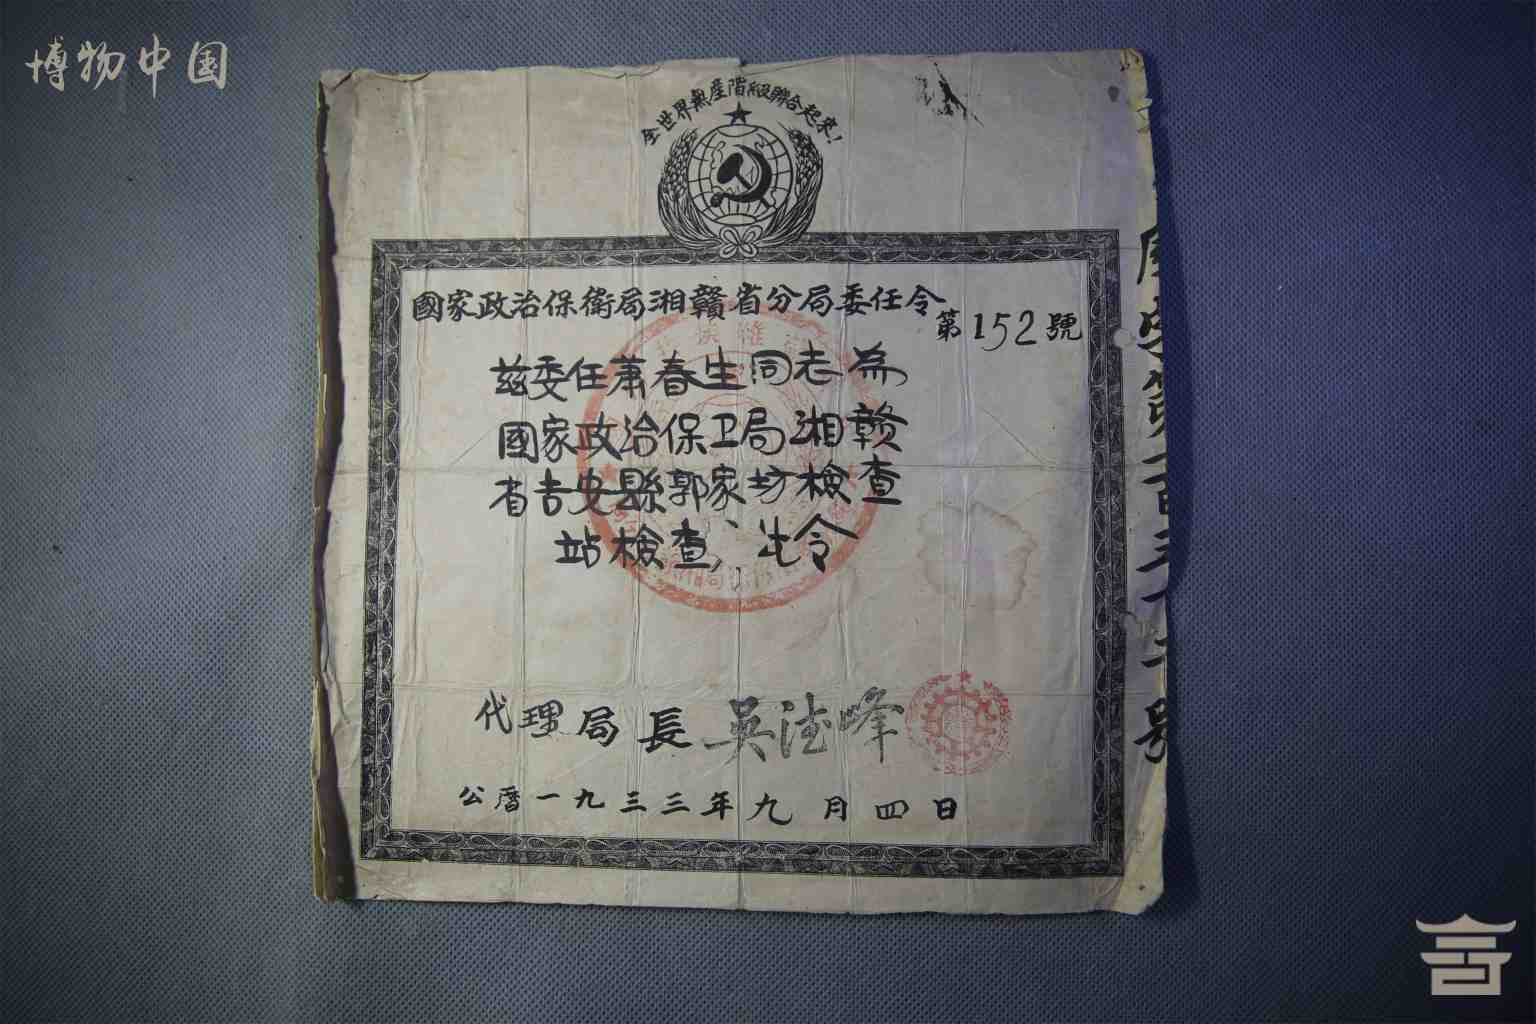 博物中国
全世界無產階級聯合起來！
國家政治保衛局湘贛省分局委任令
第152號
茲委任萧春生同志為
國家政治保卫局湘贛
省吉安縣郭家坊檢查
站檢查，此令
代理局長 吳德峰
公曆一九三三年九月四日
字第一百五十二号